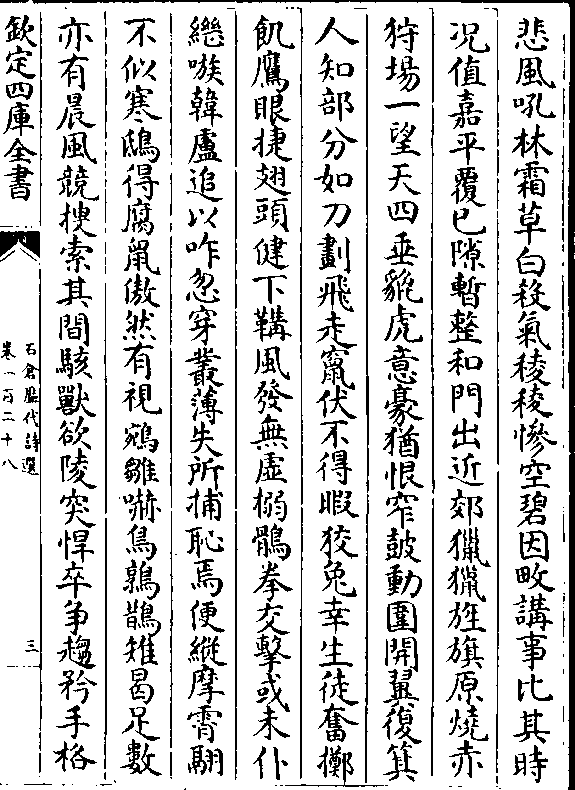 悲風吼林霜草白殺氣稜稜慘空碧因畋講事比其時
况值嘉平覆已隙暫整和門出近郊獵獵旌旗原燒赤
狩場一望天四垂貔虎意豪猶恨窄鼓動圍開翼復箕
人知部分如刀劃飛走竄伏不得暇狡兔幸生徒奮擲
飢鷹眼捷翅頭健下鞲風發無虛搦鶻拳交擊或未仆
繼嗾韓盧追以咋忽穿叢薄失所捕恥焉便縱摩霄翮
不似寒鴟得腐䑕傲然有視鵷雛嚇鳥鶉鵲雉曷足數
亦有晨風競捜索其間駭獸欲陵突悍卒争趨矜手格
欽定四庫全書
石倉歷代詩選
卷一百二十八
三